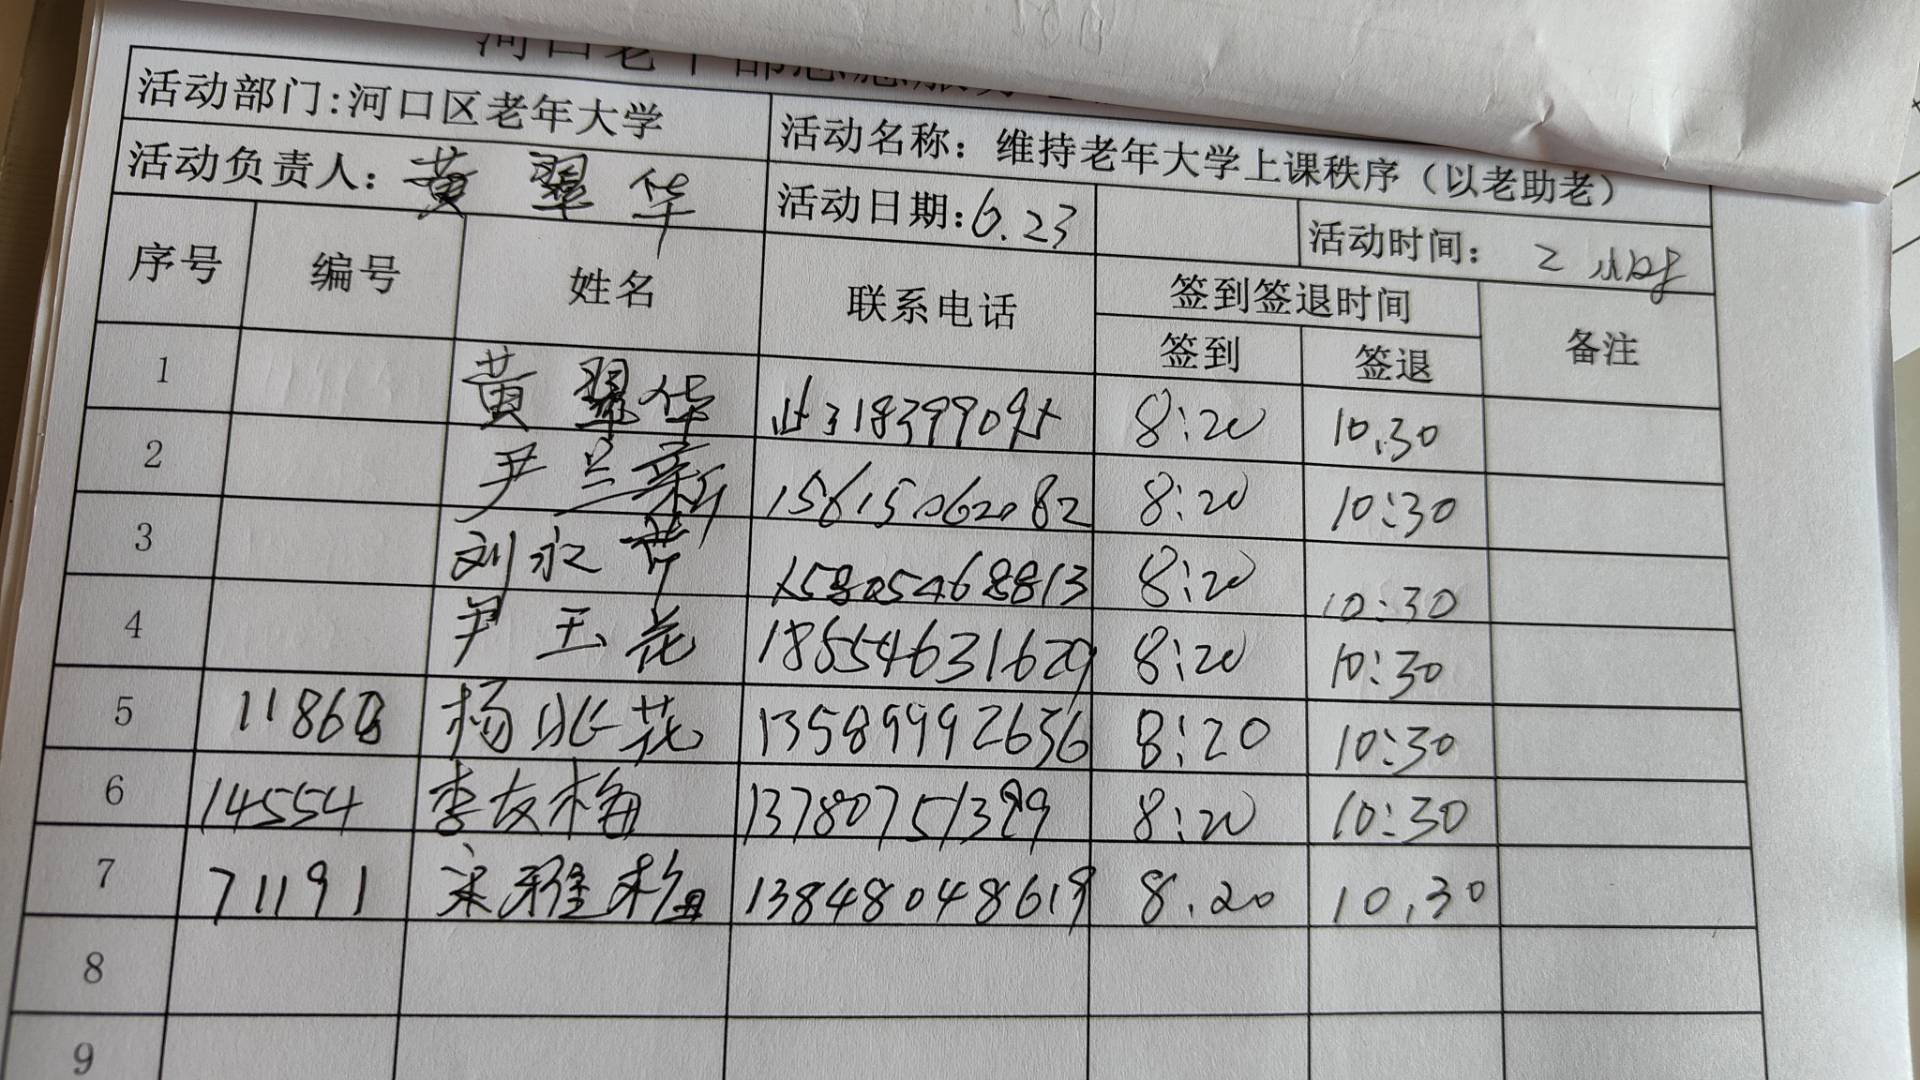 活动部门:河口区老年大学 活动名称：维持老年大学上课秩序（以老助老）
活动负责人：黄翠华 活动日期:6.23 活动时间： 2小时
序号 编号 姓名 联系电话 签到签退时间 备注
签到 签退
1 黄翠华 8:20 10.30
2 尹兰新 15615062082 8:20 10:30
3 刘永芹 15805468813 8:20 10:30
4 尹玉花 18554631629 8:20 10:30
5 杨 花 13589992636 8:20 10:30
6 14554 李友梅 8:20 10:30
7 71191 宋雅梅 13848048619 8.20 10.30
8
9